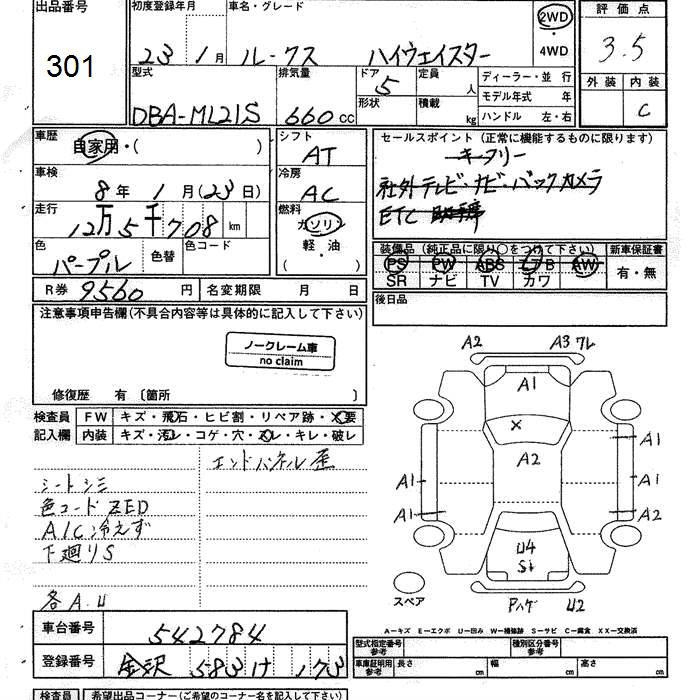 出品番号 301
初度登録年月 23年 1月
車名・グレード ルークス ハイウェイスター
2WD
4WD
評価点 3.5
外装 内装 C
型式 DBA-ML21S
排気量 660 cc
ドア 5
形状
定員 人
積載 kg
ディーラー・並行
モデル年式 年
ハンドル 左・右
車歴 自家用・( )
車検 8年 1月(23日)
走行 12万5千708 km
色 パープル 色替 色コード
シフト AT
冷房 AC
燃料 ガソリン
軽・油
( )
セールスポイント(正常に機能するものに限ります)
キーフリー
社外テレビ・ナビ・バックカメラ
ETC
装備品(純正品に限り○をつけて下さい) 新車保証書
PS PW ABS エアB AW
SR ナビ TV カワ
有・無
R券 9560 円 名変期限 月 日
後日品
注意事項申告欄(不具合内容等は具体的に記入して下さい)
ノークレーム車
no claim
修復歴 有 〔箇所 〕
検査員 FW キズ・飛石・ヒビ割・リペア跡・X要
記入欄 内装 キズ・汚レ・コゲ・穴・スレ・キレ・破レ
エンドパネル歪
シートシミ
色コード ZED
A/C 冷えず
下廻りS
各A.U
A2 A3 ワレ
A1
X
A2
A1 A1
A1 A1
A2
U4
S1
Pハゲ U2
スペア
A-キズ E-エクボ U-凹み W-補修跡 S-サビ C-腐食 XX-交換済
車台番号 542784
登録番号 金沢 583 け 173
型式指定番号 参考 種別区分番号 参考
車庫証明用 参考 長さ cm 幅 cm 高さ cm
検査員 希望出品コーナー(ご希望のコーナー名を記入下さい)